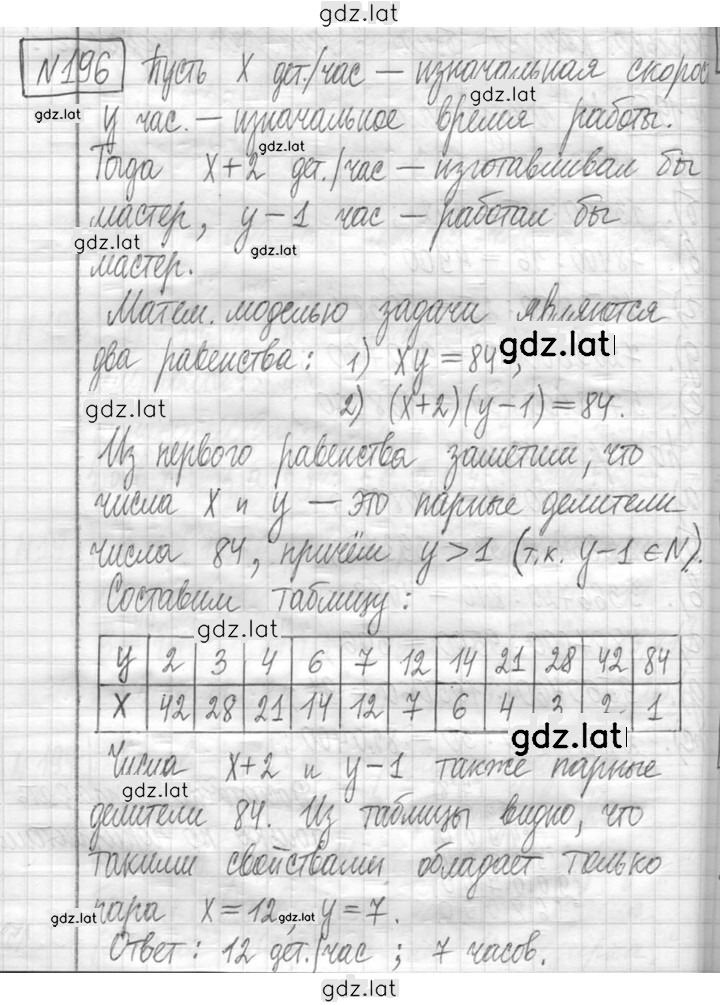 gdz.lat
N196 Пусть x дет./час – изначальная скорос
gdz.lat
gdz.lat
y час. – изначальное время работы.
gdz.lat
Тогда x+2 дет./час – изготавливал бы
мастер, y–1 час – работал бы
gdz.lat
gdz.lat
мастер.
Матем. моделью задачи являются
два равенства: 1) xy = 84,
gdz.lat
2) (x+2)(y–1)=84.
gdz.lat
Из первого равенства заметим, что
числа x и y – это парные делители
числа 84, причём y>1 (т.к. y–1∈N).
Составим таблицу:
gdz.lat
y 2 3 4 6 7 12 14 21 28 42 84
x 42 28 21 14 12 7 6 4 3 2 1
gdz.lat
Числа x+2 и y–1 также парные
gdz.lat
делители 84. Из таблицы видно, что
такими свойствами обладает только
пара x=12, y=7.
gdz.lat
gdz.lat
Ответ: 12 дет./час; 7 часов.
gdz.lat